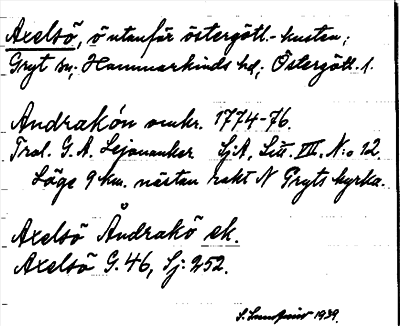 Axelsö, ö utanför östergötl.-kusten;
Gryt sn; Hammarkinds hd; Östergötl. l.
Andrakön omkr. 1774-76.
Trol. G. A. Lejonanker SjA, Litt. III, N:o 12.
Läge 9 km. nästan rakt N Gryts kyrka.
Axelsö Åndrakö ek.
Axelsö G. 46, Sj: 252.
1939.